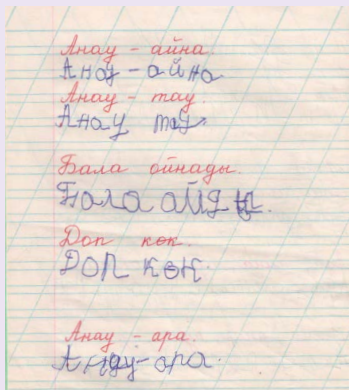 Анау - айна.
Анау - айна
Анау - тау.
Анау тау
Бала ойнады.
Бала айды.
Доп көк.
Доп көк.
Анау - ара.
Анау - ара.